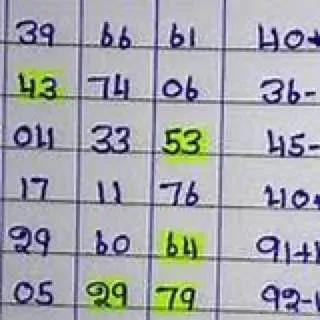 39 66 61 40+
43 74 06 36-
04 33 53 45-
17 11 76 40+
29 60 64 91+
05 29 79 92-